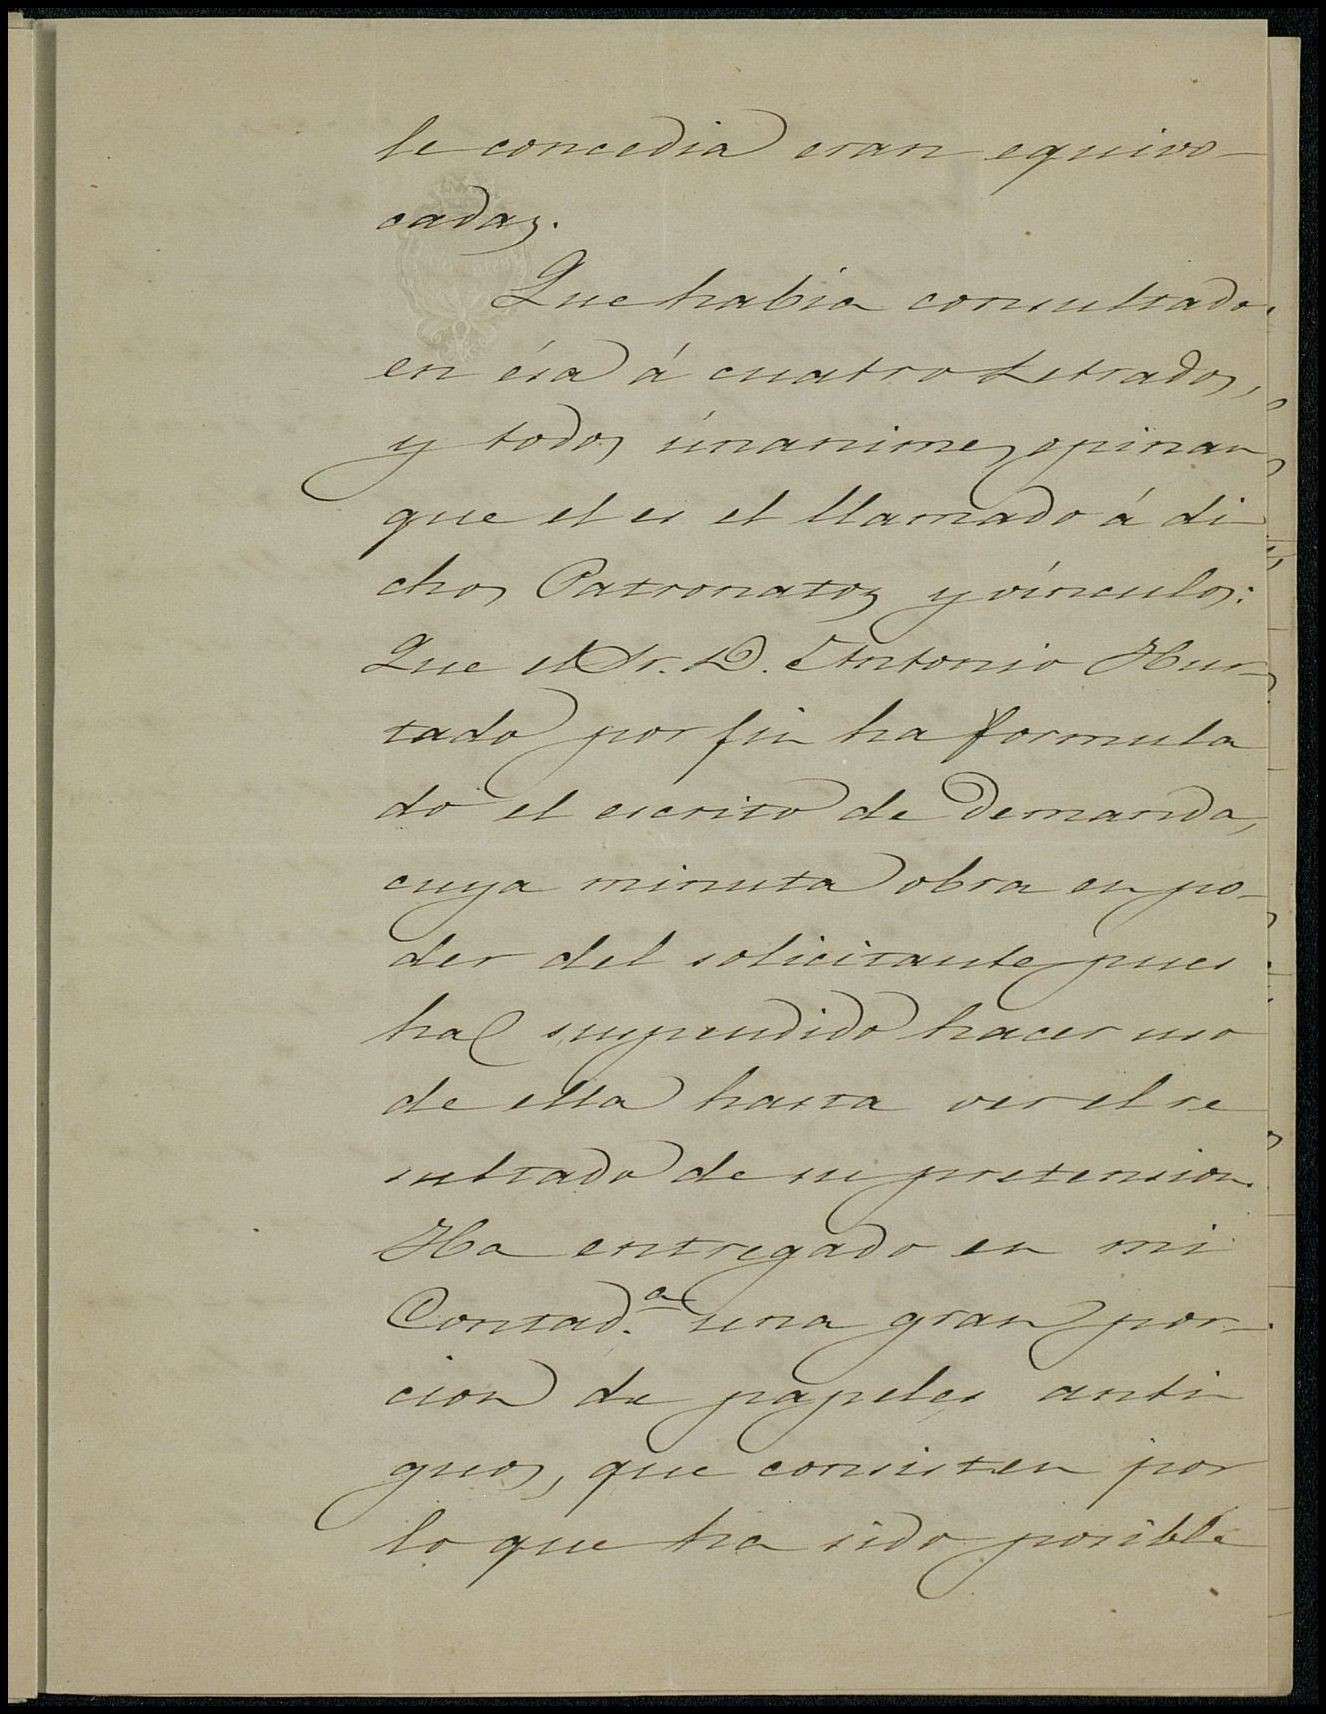 le concedia eran equivo-
cadas.
Que habia consultado
en ésa á cuatro Letrados,
y todos únanimes opinan
que el es el llamado á di-
chos Patronatos y vínculos:
Que el Sr. D. Antonio Hur-
tado por fin ha formula
do el escrito de Demanda,
cuya minuta obra en po-
der del solicitante pues
ha suspendido hacer uso
de ella hasta ver el re
sultado de su pretension.
Ha entregado en mi
Contad.ª una gran por-
cion de papeles anti-
guos, que consisten por
lo que ha sido posible